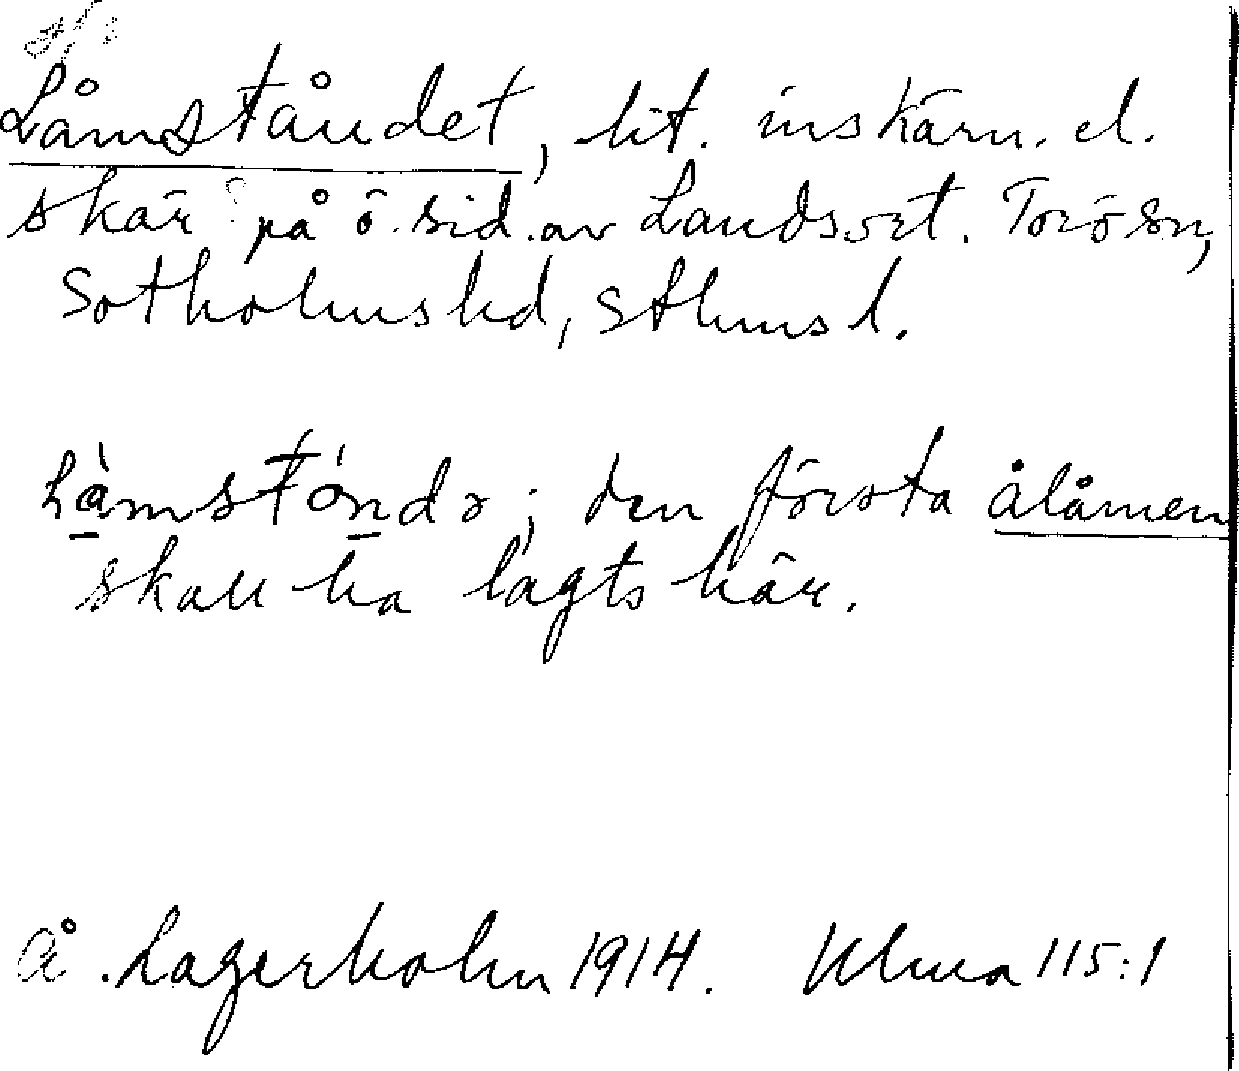 Låmståndet, lit. inskärn. el.
skär på ö. sid. av Landsort. Torö sn,
Sotholms hd, Sthms l.
làmstóndə; den första ålåmen
skall ha lagts här.
Å. Lagerholm 1914. Ulma 115:1